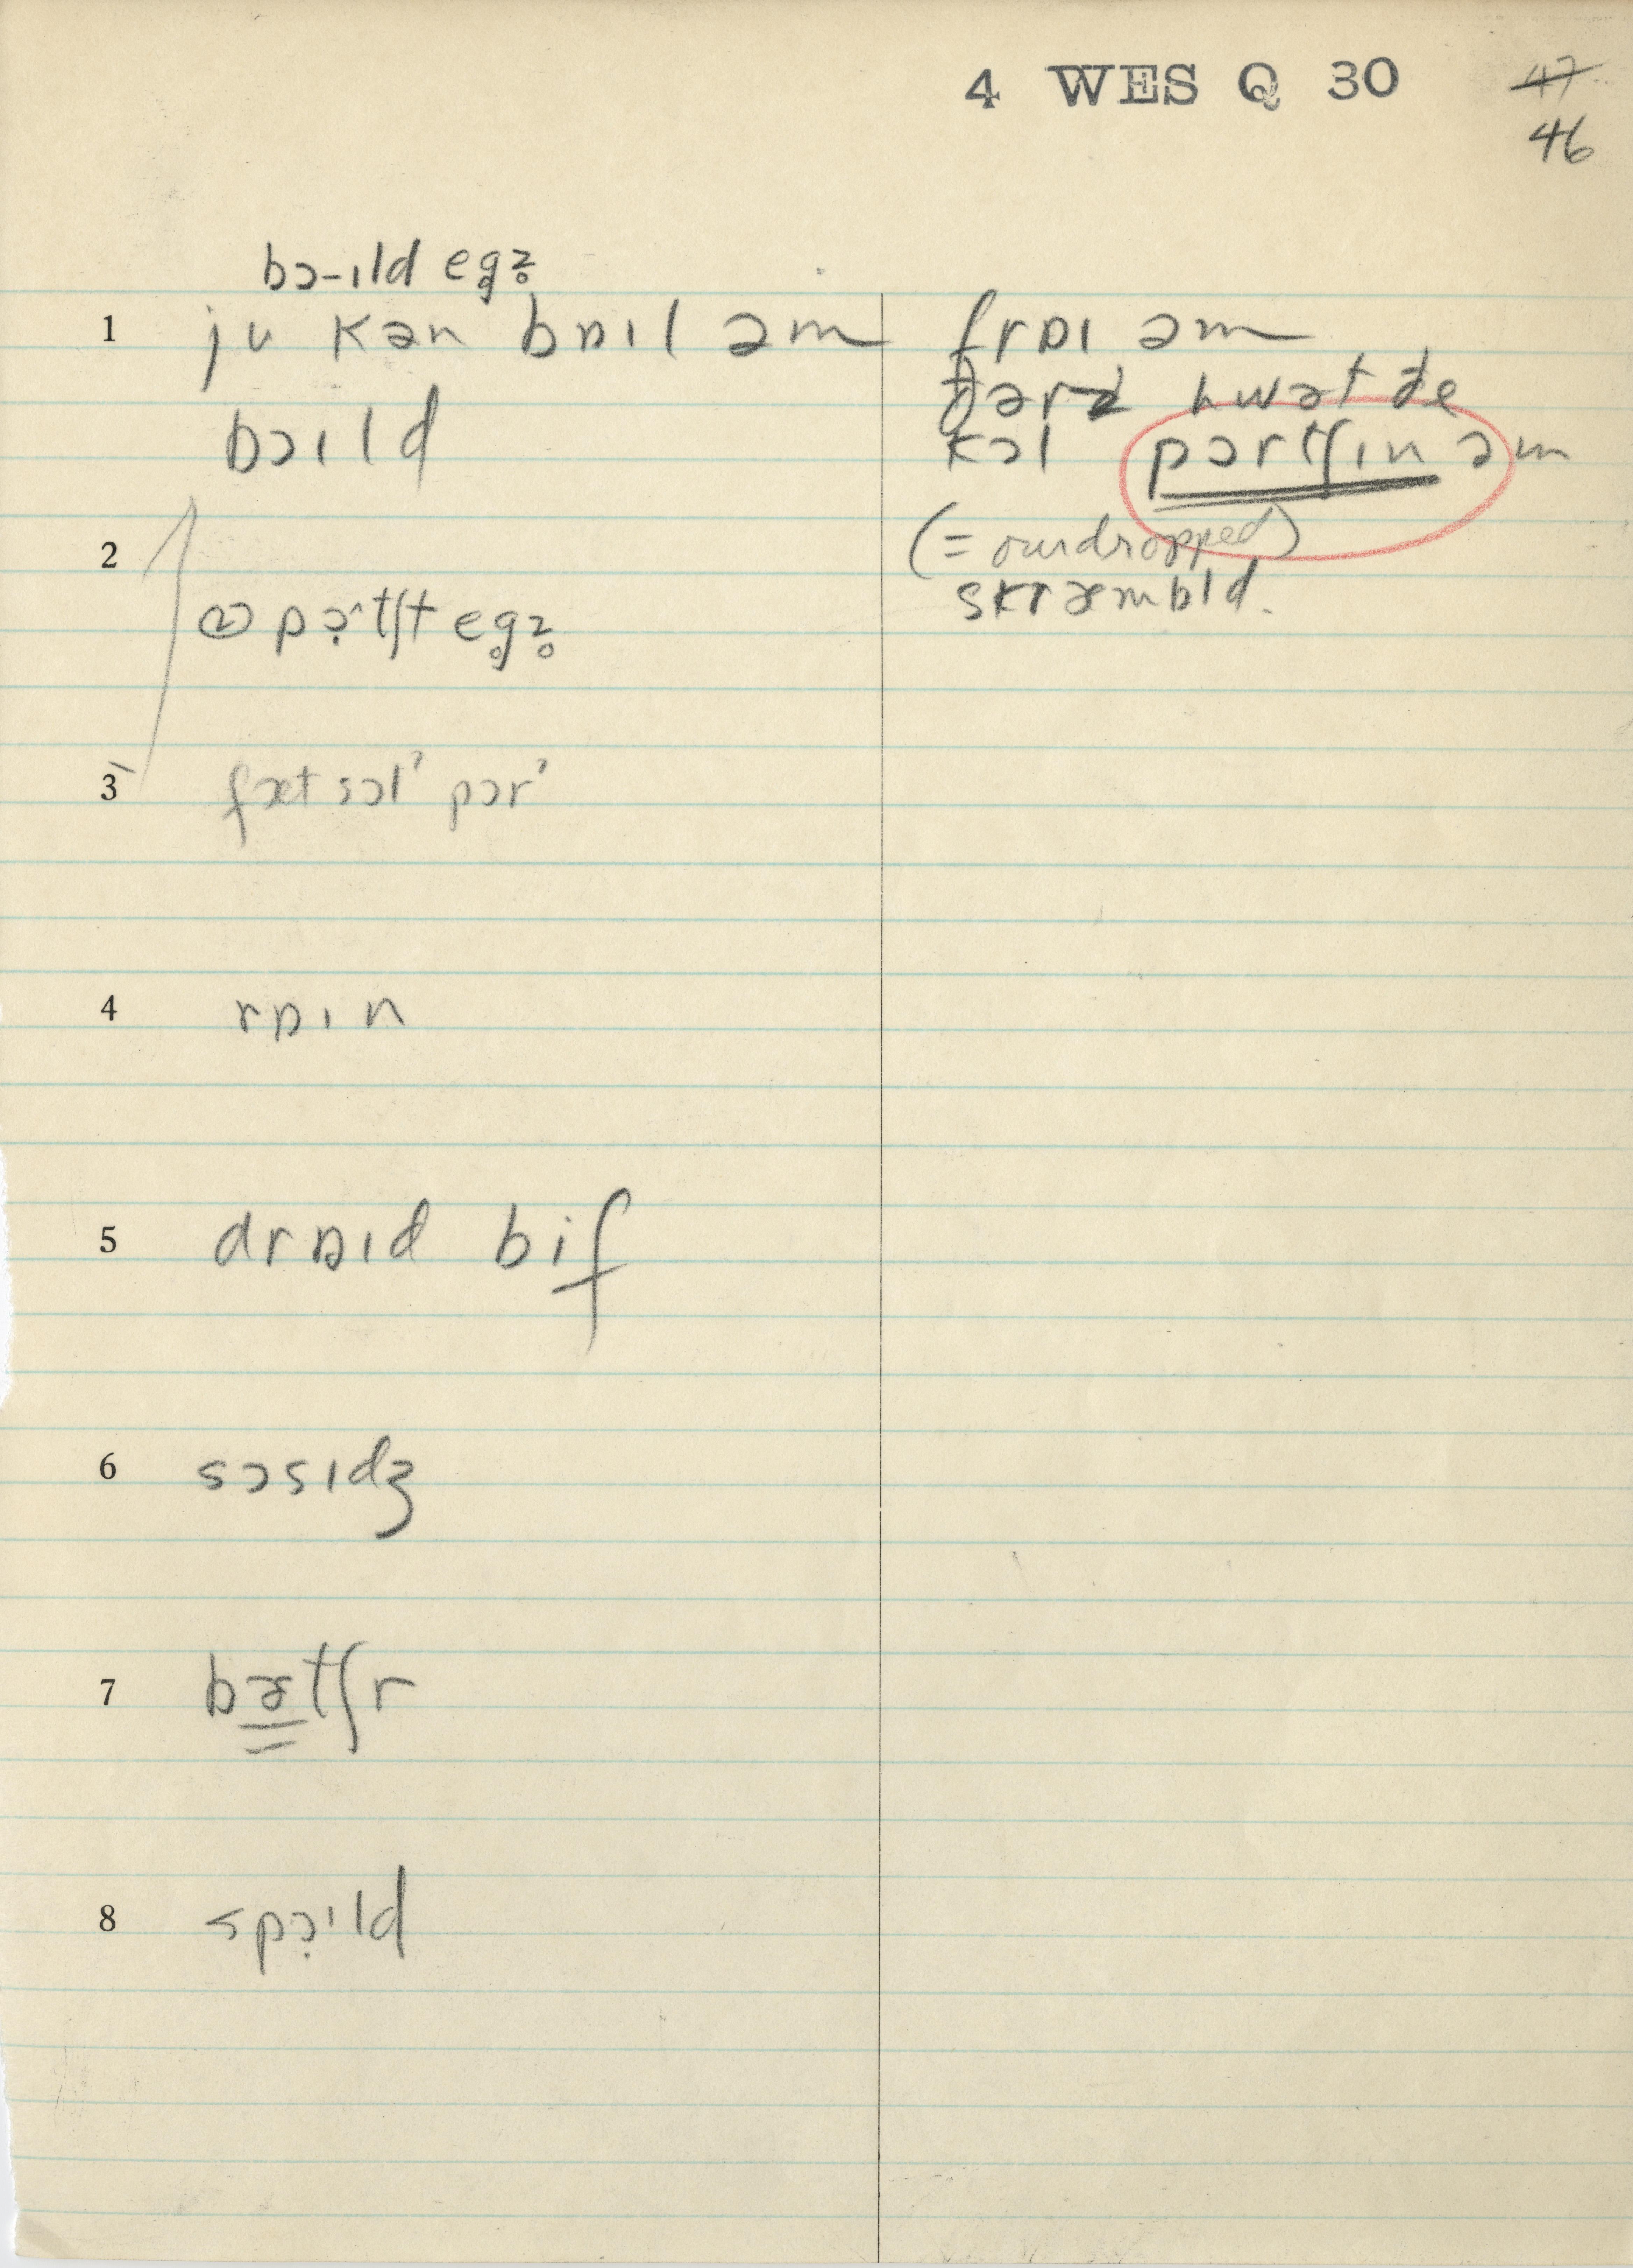 4 WES Q 30 47
46
bɔ-ɪld eg̥z̥
1 ju kən bɒɪl əm frɒɪ əm
ðərz hwət ðe
bɔɪld kɔl pɔrtʃɪn əm
2 (= ourdropped)
skræmbld.
② pɔ̣^tʃt eg̥z̥
3 fæt sɔl' pɔr'
4 rɒɪn
5 drɒɪd bif
6 sɔsɪdʒ
7 bətʃr
8 spɔ̣ɪld